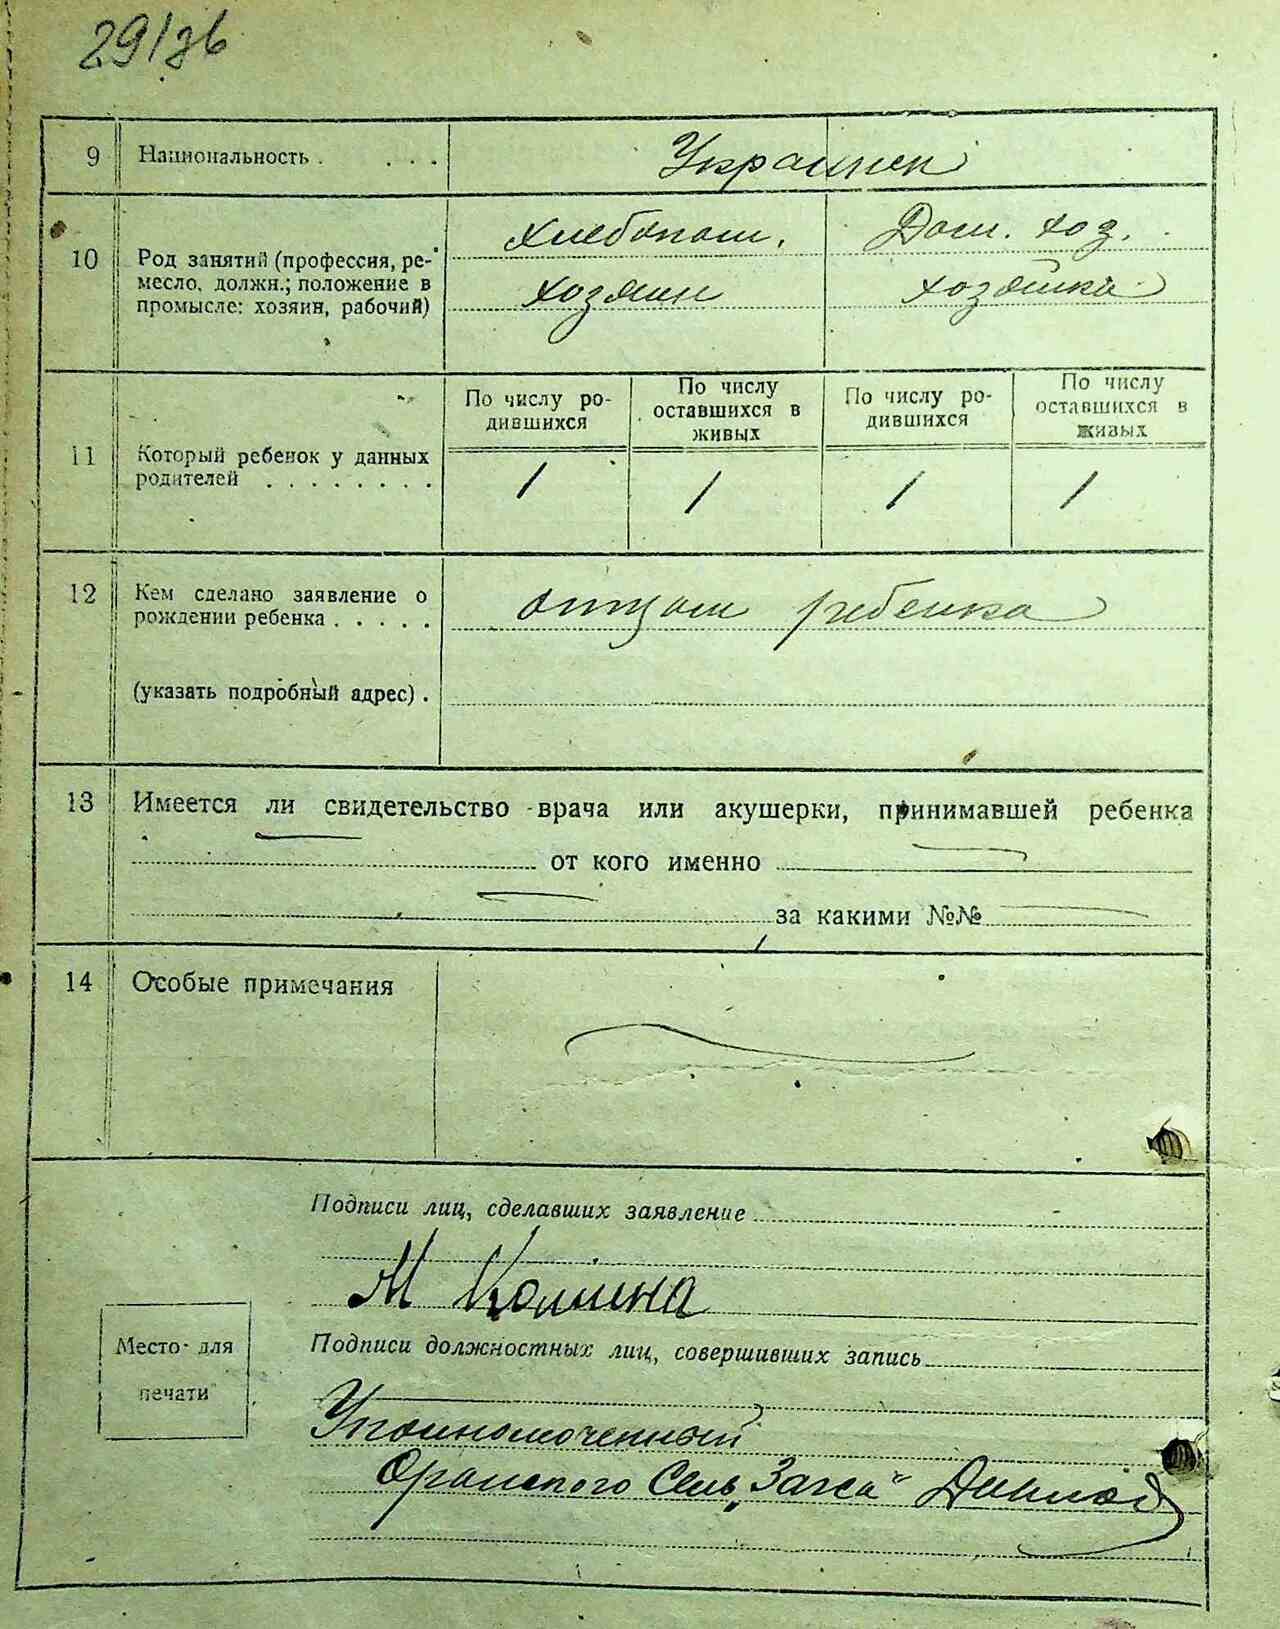 29/36
9 Национальность . . . . Украинец
10 Род занятий (профессия, ре-
месло, должн.; положение в
промысле: хозяин, рабочий)
Хлебопаш. Дом. хоз.
хозяин хозяйка
По числу ро-
дившихся
По числу
оставшихся в
живых
По числу ро-
дившихся
По числу
оставшихся в
живых
11 Который ребенок у данных
родителей . . . . . . . .
1 1 1 1
12 Кем сделано заявление о
рождении ребенка . . . . .
отцом ребенка
(указать подробный адрес) .
13 Имеется ли свидетельство врача или акушерки, принимавшей ребенка
от кого именно
за какими №№
14 Особые примечания
Подписи лиц, сделавших заявление
М
Место для
печати
Подписи должностных лиц, совершивших запись
Уполномоченный
Сель „Загса“